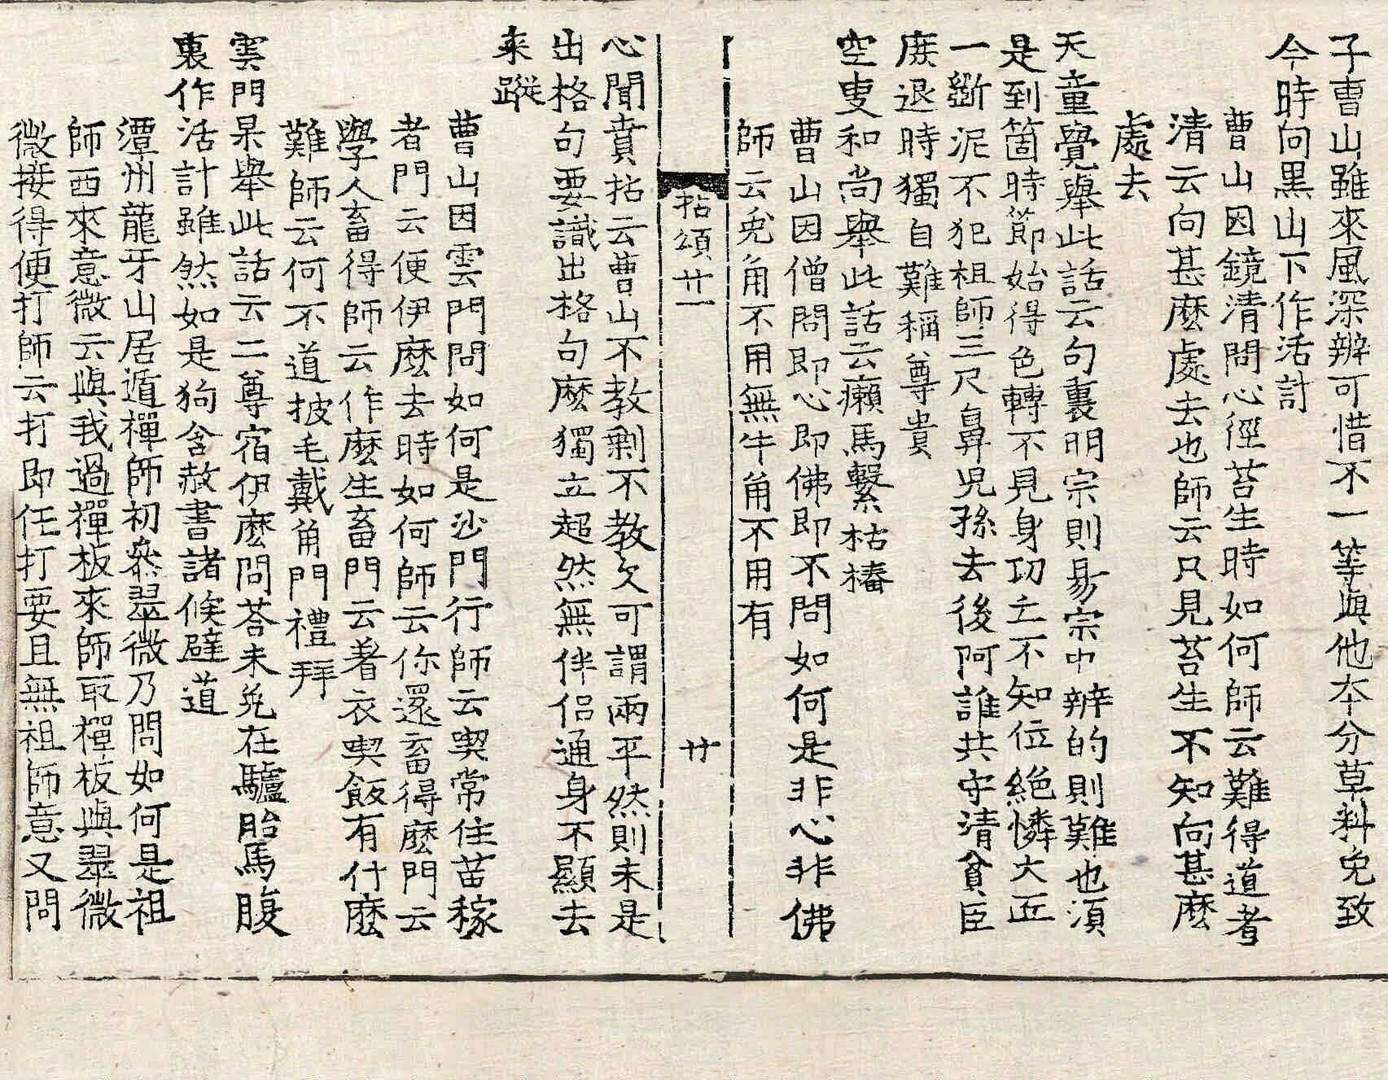 子曹山雖來風深辨可惜不一等與他本分草料免致
今時向黑山下作活計
曹山因鏡清問心徑苔生時如何師云難得道者
清云向甚麽處去也師云只見苔生不知向甚麽
處去
天童覺舉此話云句裏明宗則易宗中辨的則難也須
是到箇時節始得色轉不見身功亡不知位絶憐大丘
一斷泥不犯祖師三尺鼻児孫去後阿誰共守清貧臣
庶退時獨自難稱尊貴
空叟和尚舉此話云癩馬繫枯樁
曹山因僧問即心即佛即不問如何是非心非佛
師云兎角不用無牛角不用有
拈頌廿一
廿
心聞賁拈云曹山不教剩不教欠可謂兩平然則未是
出格句要識出格句麽獨立超然無伴侶通身不顯去
来蹤
曹山因雲門問如何是沙門行師云喫常住苗稼
者門云便伊麽去時如何師云你還畜得麽門云
學人畜得師云作麽生畜門云著衣喫飯有什麽
難師云何不道披毛戴角門禮拜
雲門杲舉此話云二尊宿伊麽問荅未免在驢胎馬腹
裏作活計雖然如是狗含赦書諸候避道
潭州龍牙山居遁禪師初叅翠微乃問如何是祖
師西來意微云與我過禪板來師取禪板與翠微
微接得便打師云打即任打要且無祖師意又問